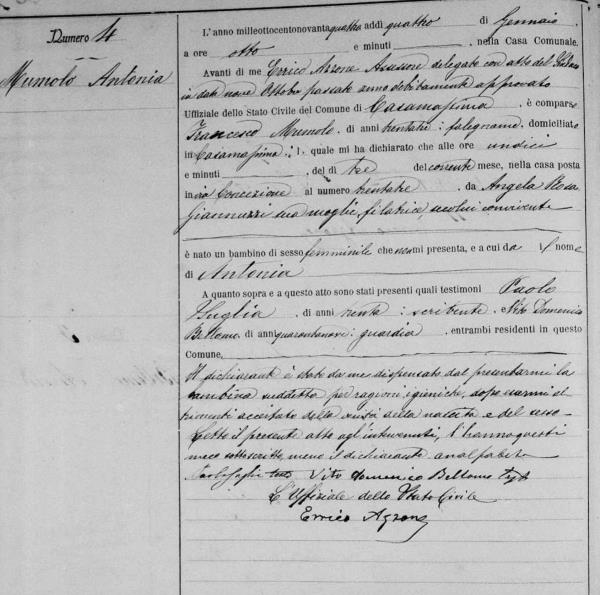 Numero 4
Mumolo Antonia
L'anno milleottocentonovantaquattro addì quattro di Gennaio,
a ore otto e minuti, nella Casa Comunale.
Avanti di me Errico Azzone Assessore delegato con atto del Sindaco
in data nove Ottobre passato anno debitamente approvato
Uffiziale dello Stato Civile del Comune di Casamassima, è comparso
Francesco Mumolo, di anni trentatre: falegname domiciliato
in Casamassima: il quale mi ha dichiarato che alle ore undici
e minuti, del dì tre del corrente mese, nella casa posta
in via Concezione al numero trentatre, da Angela Rosa
Giannuzzi sua moglie, filatrice, secolui convivente
è nato un bambino di sesso femminile che non mi presenta, e a cui dà il nome
di Antonia
A quanto sopra e a questo atto sono stati presenti quali testimoni Paolo
Fuglia, di anni trenta: scribente e Vito Domenico
Bellomo di anni quarantanove: guardia, entrambi residenti in questo
Comune,
Il dichiarante è stato da me dispensato dal presentarmi la
bambina suddetta per ragioni igieniche, dopo essermi al
trimenti accertato della verità della nascita e del sesso
Letto il presente atto agl'intervenuti, l'hanno questi
meco sottoscritto, meno il dichiarante analfabeta
Vito Domenico Bellomo
L'Uffiziale dello Stato Civile
Errico Azzone